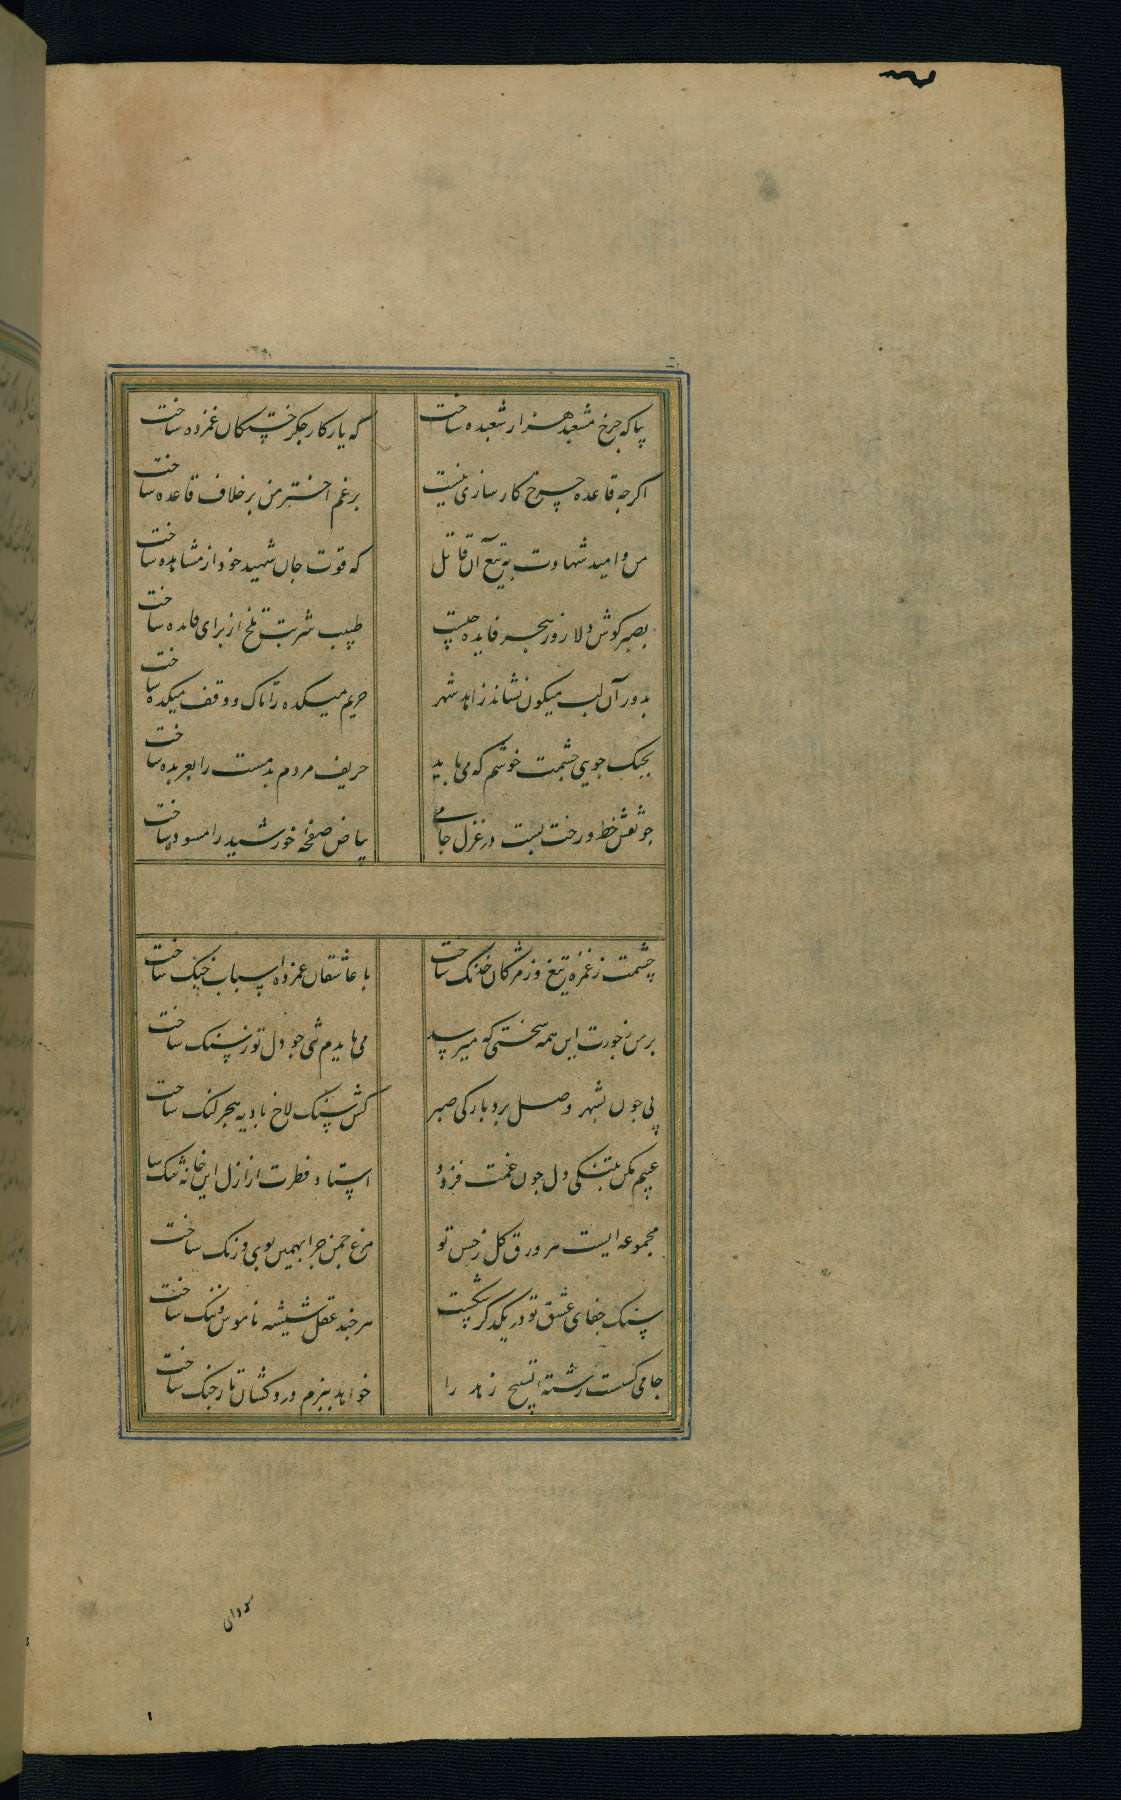 بیا که چرخ مشعبد هزار شعبده ساخت
که یار کار جگر خستگان غمزده ساخت
اگرچه قاعده چرخ کارسازی نیست
برغم اختر من بر خلاف قاعده ساخت
من و امید شهادت به تیغ آن قاتل
که قوت جان شهید خود از مشاهده ساخت
بصبر کوش دلا روز هجر فایده چیست
طبیب شربت تلخ از برای فایده ساخت
بدور آن لب میگون نشاند زاهد شهر
حریم میکده را تاک و وقف میکده ساخت
بجنگ جویی چشمت خوشم که می باید
حریف مردم بدمست را بعربده ساخت
چو نقش خط و رخت بست در غزل جامی
بیاض صفحه خورشید را مسوده ساخت
چشمت ز غمزه تیغ و ز مژگان خدنگ ساخت
با عاشقان غمزده اسباب جنگ ساخت
بر من ز خوت این همه سختی که میرسد
می بایدم شی چو دل تو ز سنگ ساخت
پی چون بشهر وصل برد بارگی صبر
کش سنگ لاخ بادیه هجر لنگ ساخت
عیبم مکن بتنگی دل چون غمت فزود
استاد فطرت از ازل این خانه تنگ ساخت
مجموعه ایست هر ورق گل ز حسن تو
مرغ چمن چرا بهمین بوی و رنگ ساخت
سنگ جفای عشق تو در یکدگر شکست
هر چند عقل شیشه ناموس و ننگ ساخت
جامی گسست رشته تسبیح زهد را
خواهد ببزم دردکشان تار چنگ ساخت
سودای